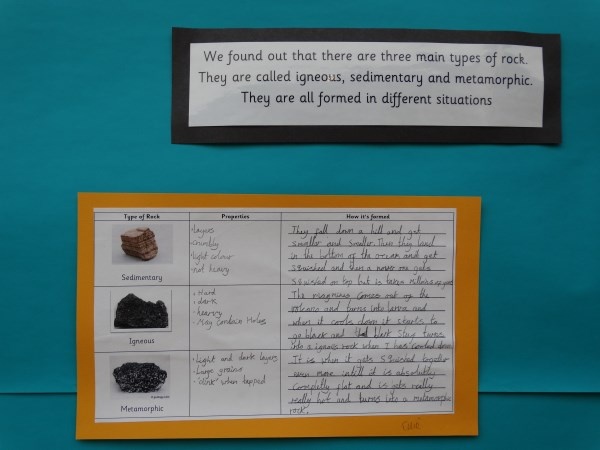 We found out that there are three main types of rock.
They are called igneous, sedimentary and metamorphic.
They are all formed in different situations
Type of Rock
Properties
How it's formed
Sedimentary
·layers
·crumbly
·light colour
·not heavy
They fall down a hill and get
smaller and smaller. Then they land
in the bottom of the ocean and get
squished and then a one gets
squished on top but is takes millions of years
Igneous
·Hard
·dark
·heavy
·May contain Holes
The magmas comes out of the
volcano and turns into larva and
when it cools down it starts to
go black and black Slay turns
into a igneis rock when I has cooled down.
Metamorphic
·Light and dark layers
·Large grains
·'clink' when tapped
It is when it gets squished together
even more intill it is absolutley
completly flat and is gets really
really hot and turns into a metamorphic
rock.